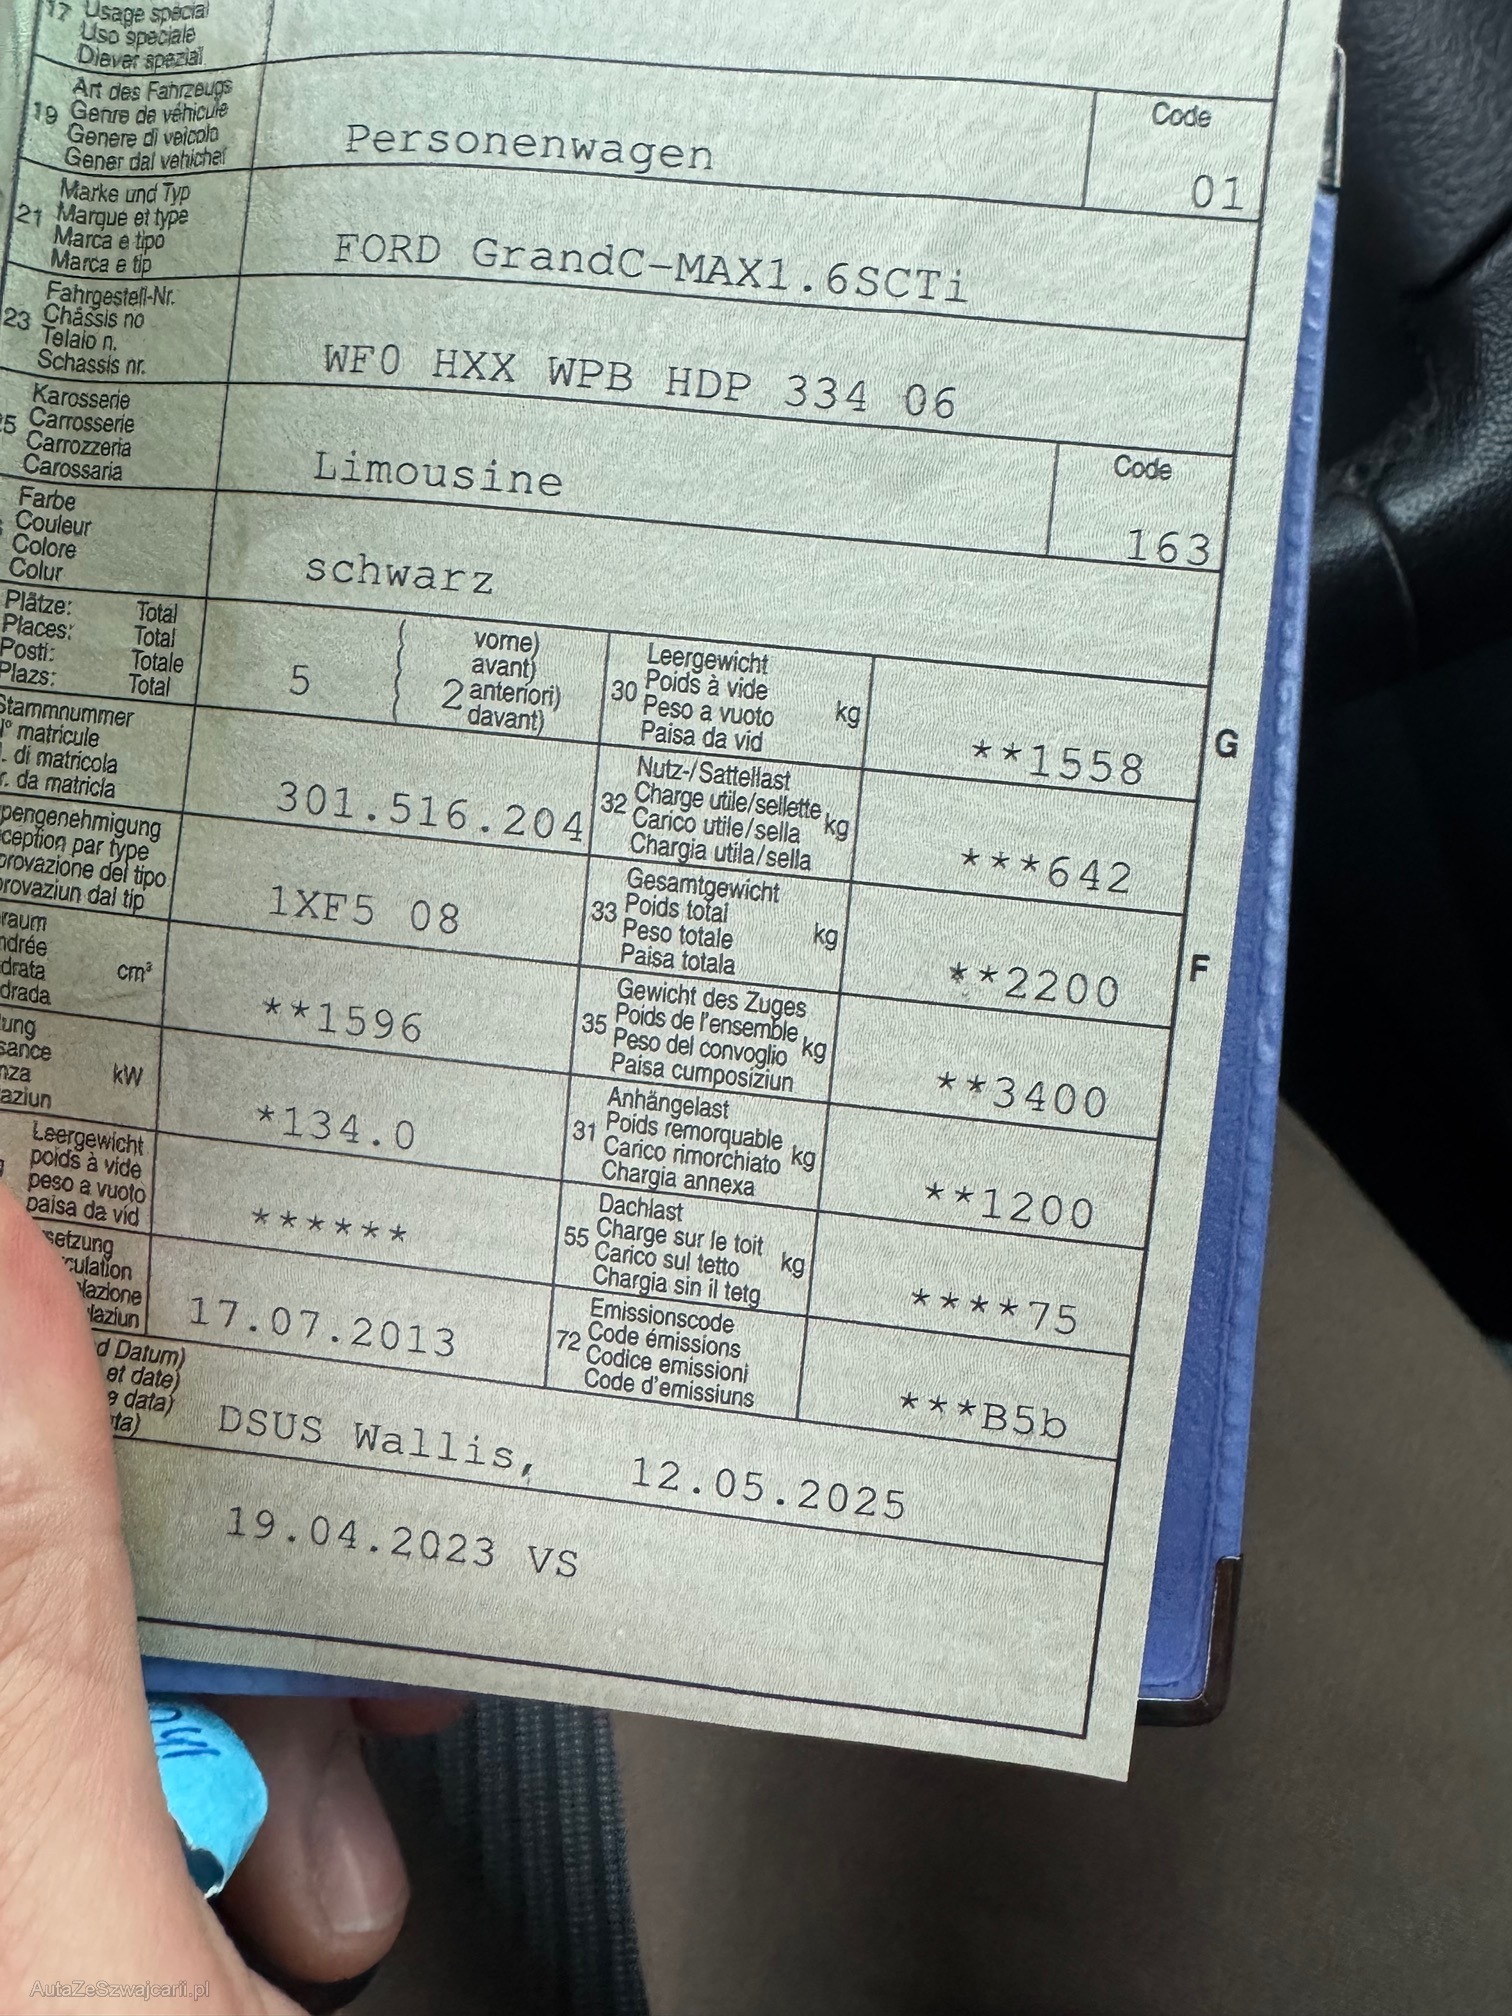 17 Usage spécial
Uso speciale
Diever spezial
Art des Fahrzeugs
19 Genre de véhicule
Genere di veicolo
Gener dal vehichel
Personenwagen
Code
01
Marke und Typ
21 Marque et type
Marca e tipo
Marca e tip
FORD GrandC-MAX1.6SCTi
Fahrgestell-Nr.
23 Châssis no
Telaio n.
Schassis nr.
WF0 HXX WPB HDP 334 06
Karosserie
Carrosserie
Carrozzeria
Carossaria
Limousine
Code
163
Farbe
Couleur
Colore
Colur
schwarz
Plätze: Total
Places: Total
Posti: Totale
Plazs: Total
5
vorne)
avant)
2 anteriori)
davant)
Leergewicht
30 Poids à vide
Peso a vuoto kg
Paisa da vid
**1558
G
Stammnummer
matricule
di matricola
da matricla
301.516.204
Nutz-/Sattellast
32 Charge utile/sellette kg
Carico utile/sella
Chargia utila/sella
***642
pengenehmigung
ception par type
provazione del tipo
rovaziun dal tip
1XF5 08
Gesamtgewicht
33 Poids total
Peso totale kg
Paisa totala
**2200
F
raum
ndrée
drata cm³
drada
**1596
Gewicht des Zuges
35 Poids de l'ensemble kg
Peso del convoglio
Paisa cumposiziun
**3400
ung
sance
nza kW
aziun
*134.0
Anhängelast
31 Poids remorquable kg
Carico rimorchiato
Chargia annexa
**1200
Leergewicht
poids à vide
peso a vuoto
paisa da vid
******
Dachlast
55 Charge sur le toit kg
Carico sul tetto
Chargia sin il tetg
****75
setzung
culation
lazione
laziun
17.07.2013
Emissionscode
72 Code émissions
Codice emissioni
Code d'emissiuns
***B5b
d Datum)
et date)
e data)
ta)
DSUS Wallis, 12.05.2025
19.04.2023 VS
AutaZeSzwajcarii.pl